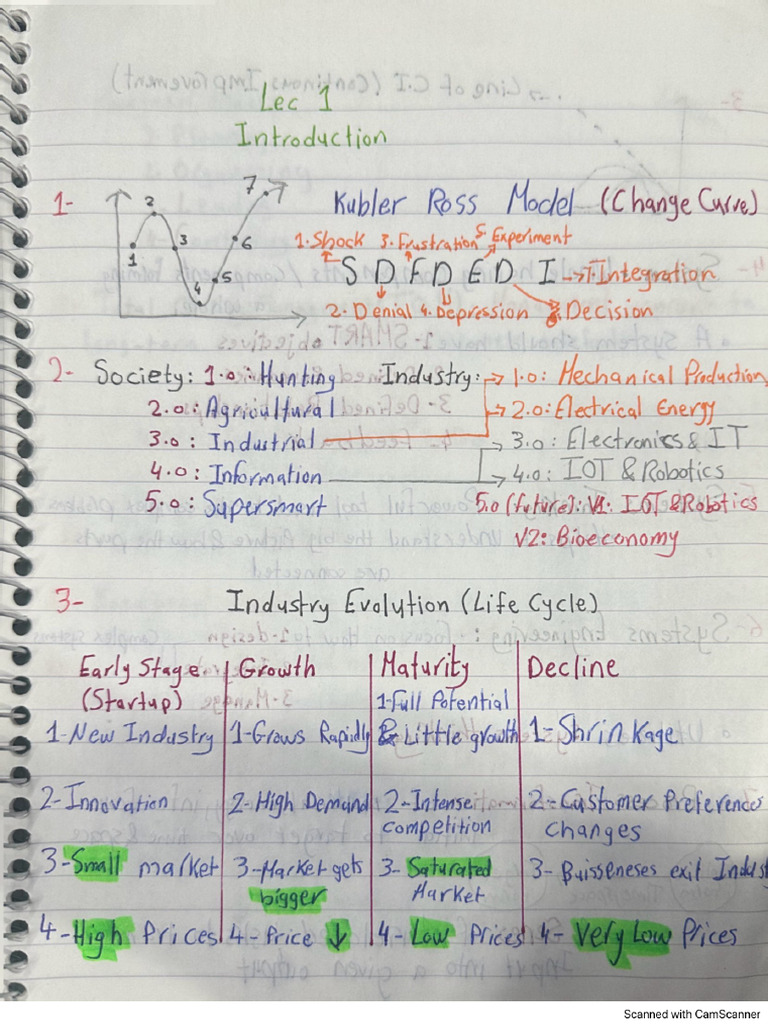 Lec 1
Introduction
1- Kubler Ross Model (Change Curve)
1 2 3 4 5 6 7
1. Shock 3. Frustration 5. Experiment
S D F D E D I → 7. Integration
2. Denial 4. Depression Decision
2- Society: 1.0: Hunting Industry: 1.0: Mechanical Production
2.0: Agricultural 2.0: Electrical Energy
3.0: Industrial 3.0: Electronics & IT
4.0: Information 4.0: IOT & Robotics
5.0: Supersmart 5.0 (future): V1: IOT & Robotics
V2: Bioeconomy
3- Industry Evolution (Life Cycle)
Early Stage (Startup) Growth Maturity Decline
1-New Industry 1-Grows Rapidly 1-Full Potential & Little growth 1- Shrinkage
2-Innovation 2-High Demand 2-Intense competition 2-Customer Preferences changes
3-Small market 3-Market gets bigger 3- Saturated Market 3- Buisseneses exit Indust
4-High Prices 4- Price ↓ 4- Low Prices 4- Very Low Prices
Scanned with CamScanner